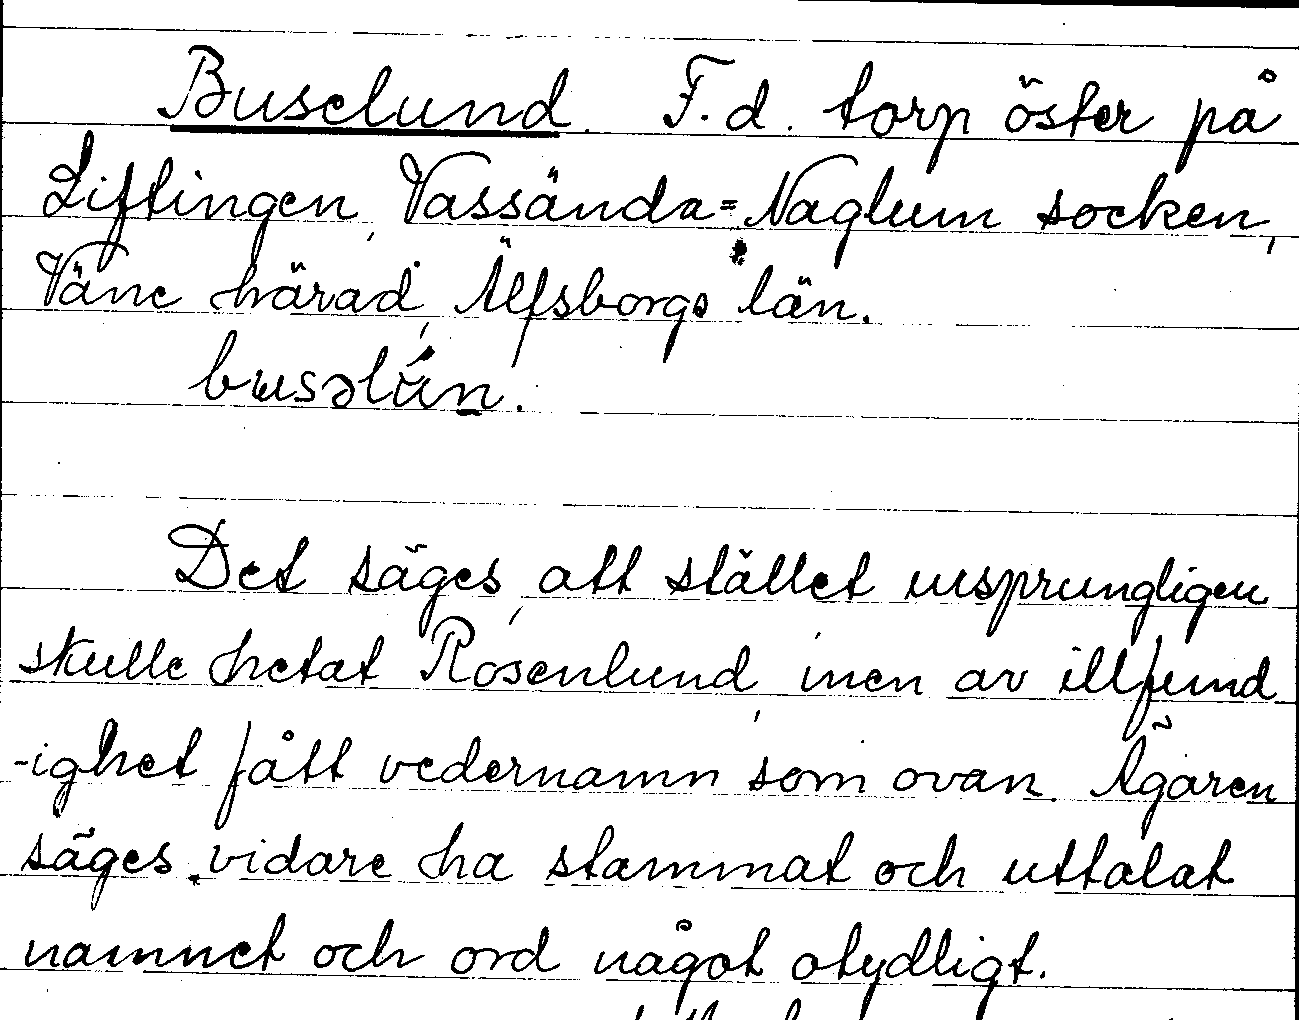 Buselund. F.d. torp öster på
Liftingen, Vassända=Naglum socken,
Väne härad, Älfsborgs län.
busəlún.
Det säges, att stället ursprungligen
skulle hetat Rosenlund, men av illfund
-ighet fått vedernamn som ovan. Ägaren
säges vidare ha stammat och uttalat
namnet och ord något otydligt.